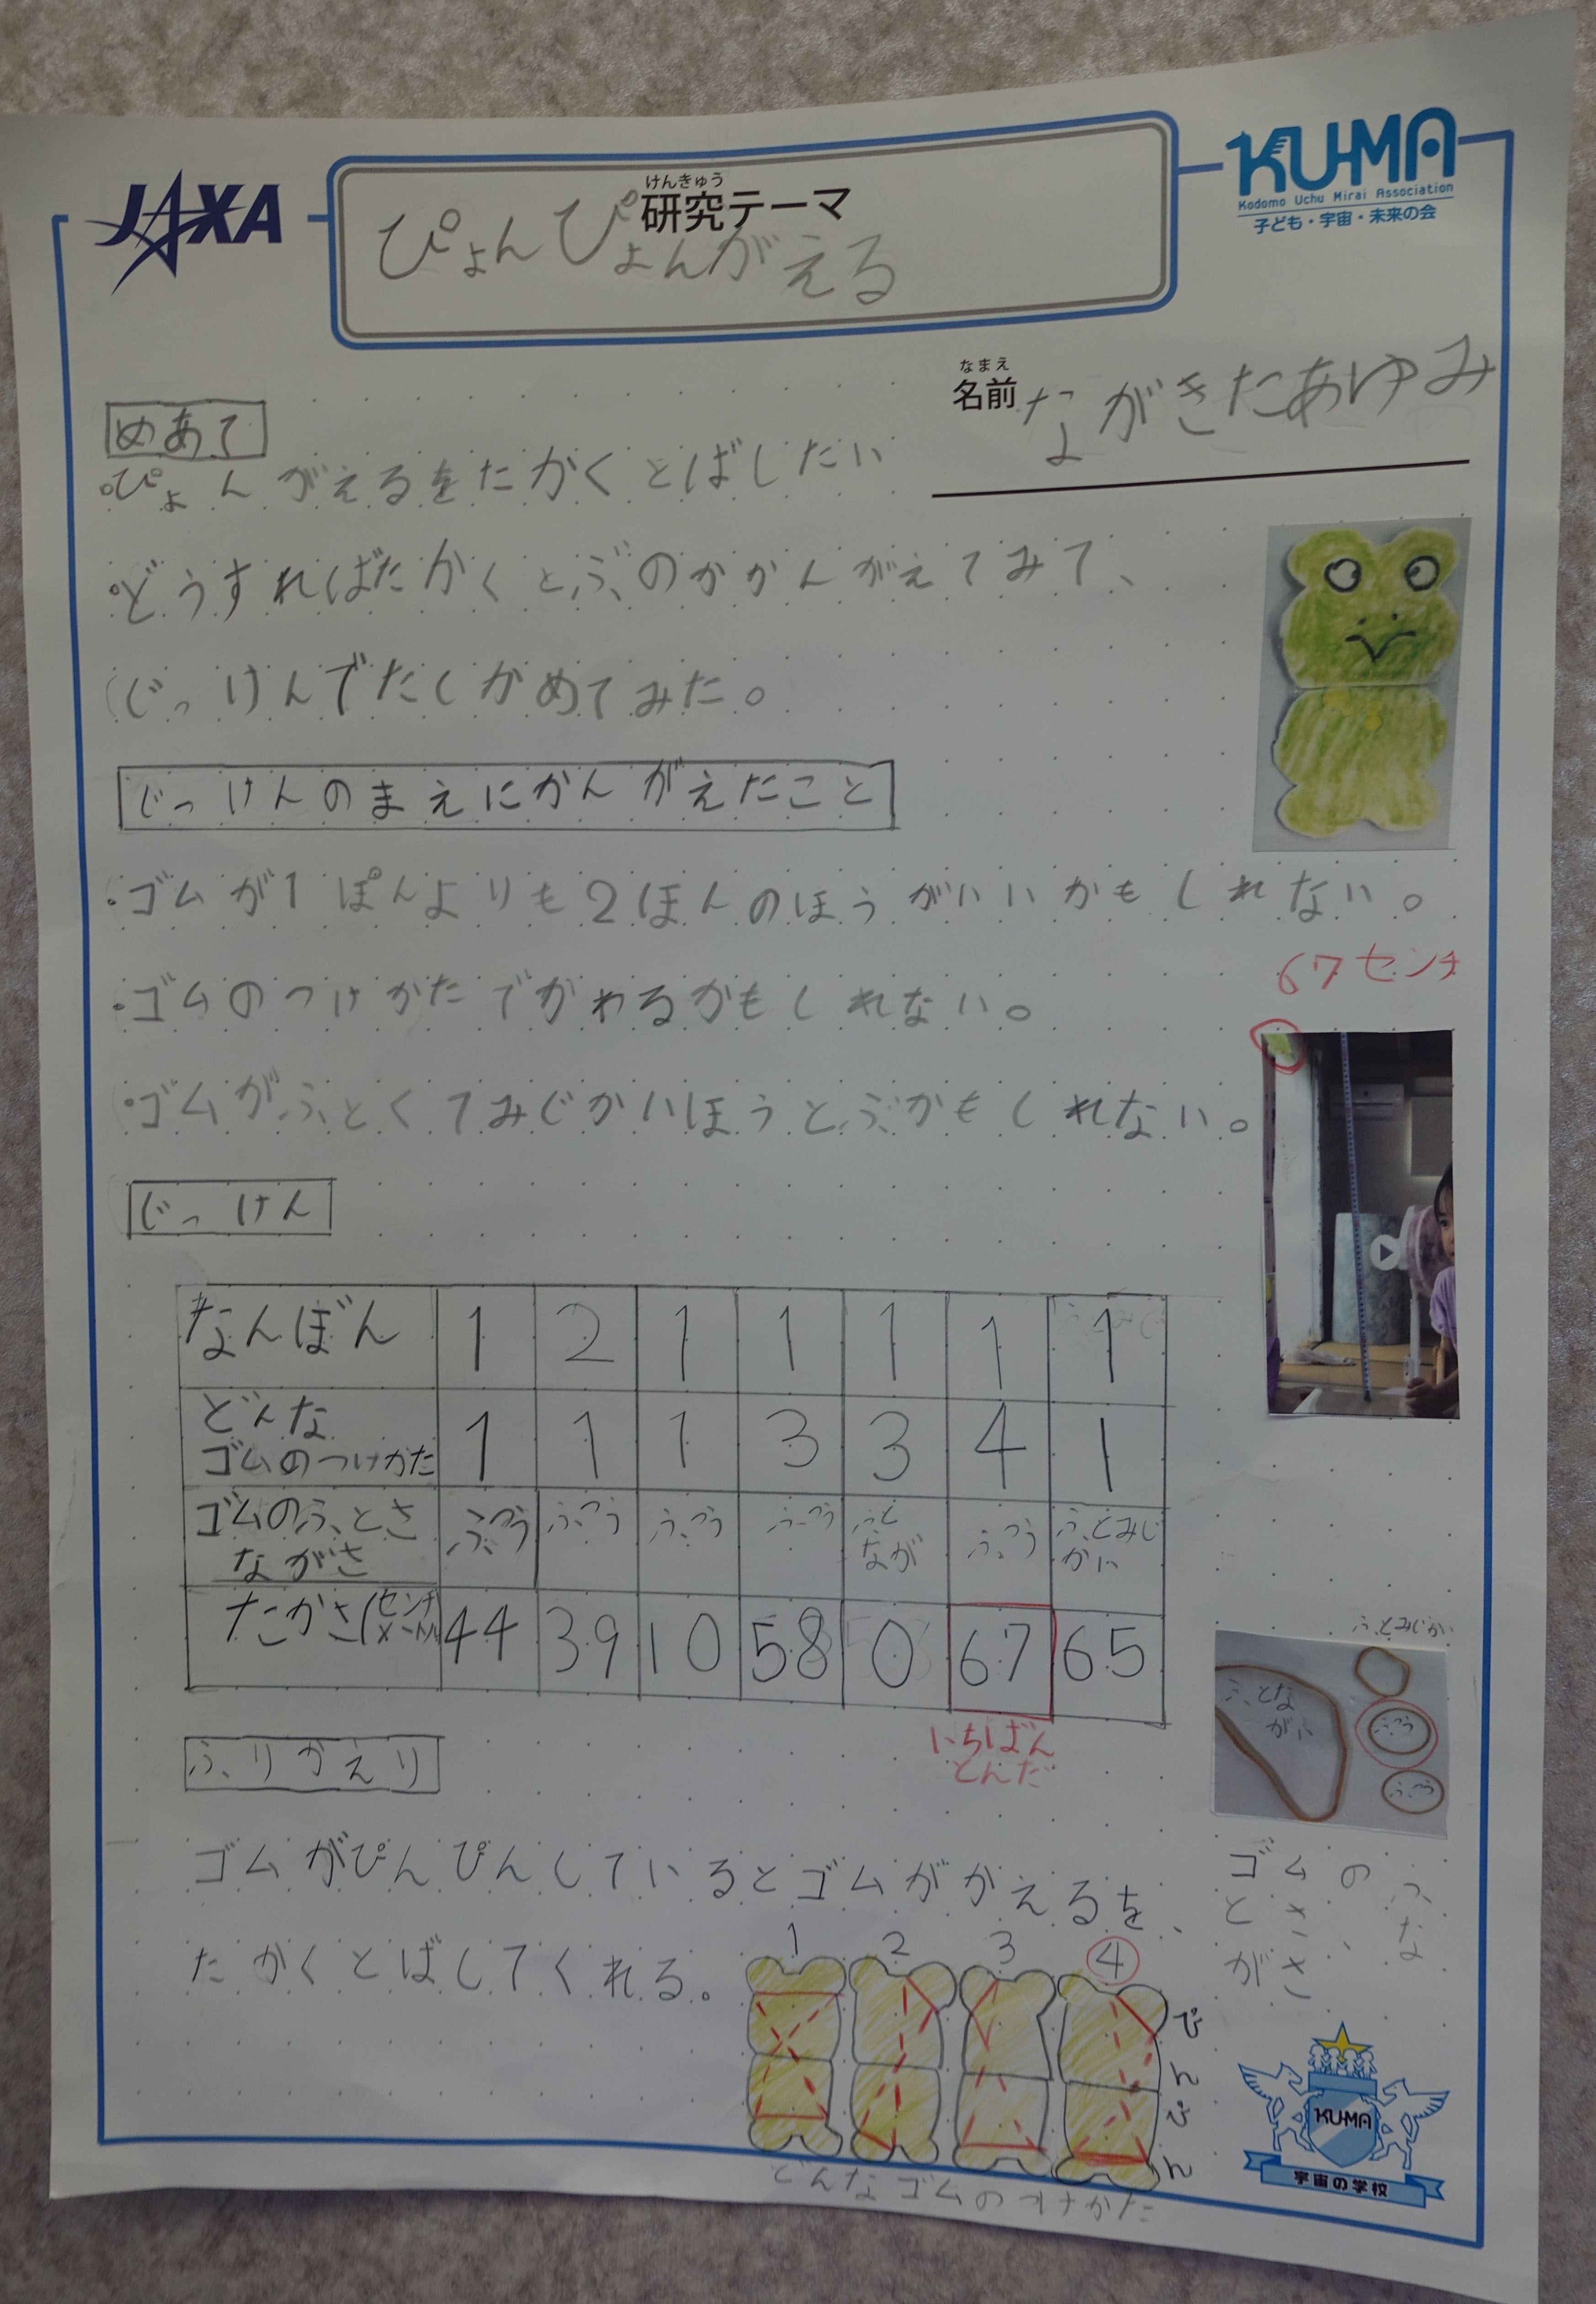 JAXA
けんきゅう
研究テーマ
ぴょんぴょんがえる
KUMA
Kodomo Uchu Mirai Association
子ども・宇宙・未来の会
なまえ
名前 ながきたあゆみ
めあて
・ぴょんがえるをたかくとばしたい
・どうすればたかくとぶのかかんがえてみて、
じっけんでたしかめてみた。
じっけんのまえにかんがえたこと
・ゴムが1ぽんよりも2ほんのほうがいいかもしれない。
・ゴムのつけかたでかわるかもしれない。
・ゴムがふとくてみじかいほうとぶかもしれない。
67センチ
じっけん
なんぼん 1 2 1 1 1 1 1
どんな
ゴムのつけかた 1 1 1 3 3 4 1
ゴムのふとさ
ながさ ふつう ふつう ふつう ふつう ふとなが ふつう ふとみじかい
たかさ(センチメートル 44 39 10 58 0 67 65
いちばん
とんだ
ふとみじかい
ふとながい
ふつう
ふつう
ゴムのふとさ、ながさ
ふりかえり
ゴムがぴんぴんしているとゴムがかえるを、
たかくとばしてくれる。
1 2 3 4
ぴんぴん
どんなゴムのつけかた
KUMA
宇宙の学校